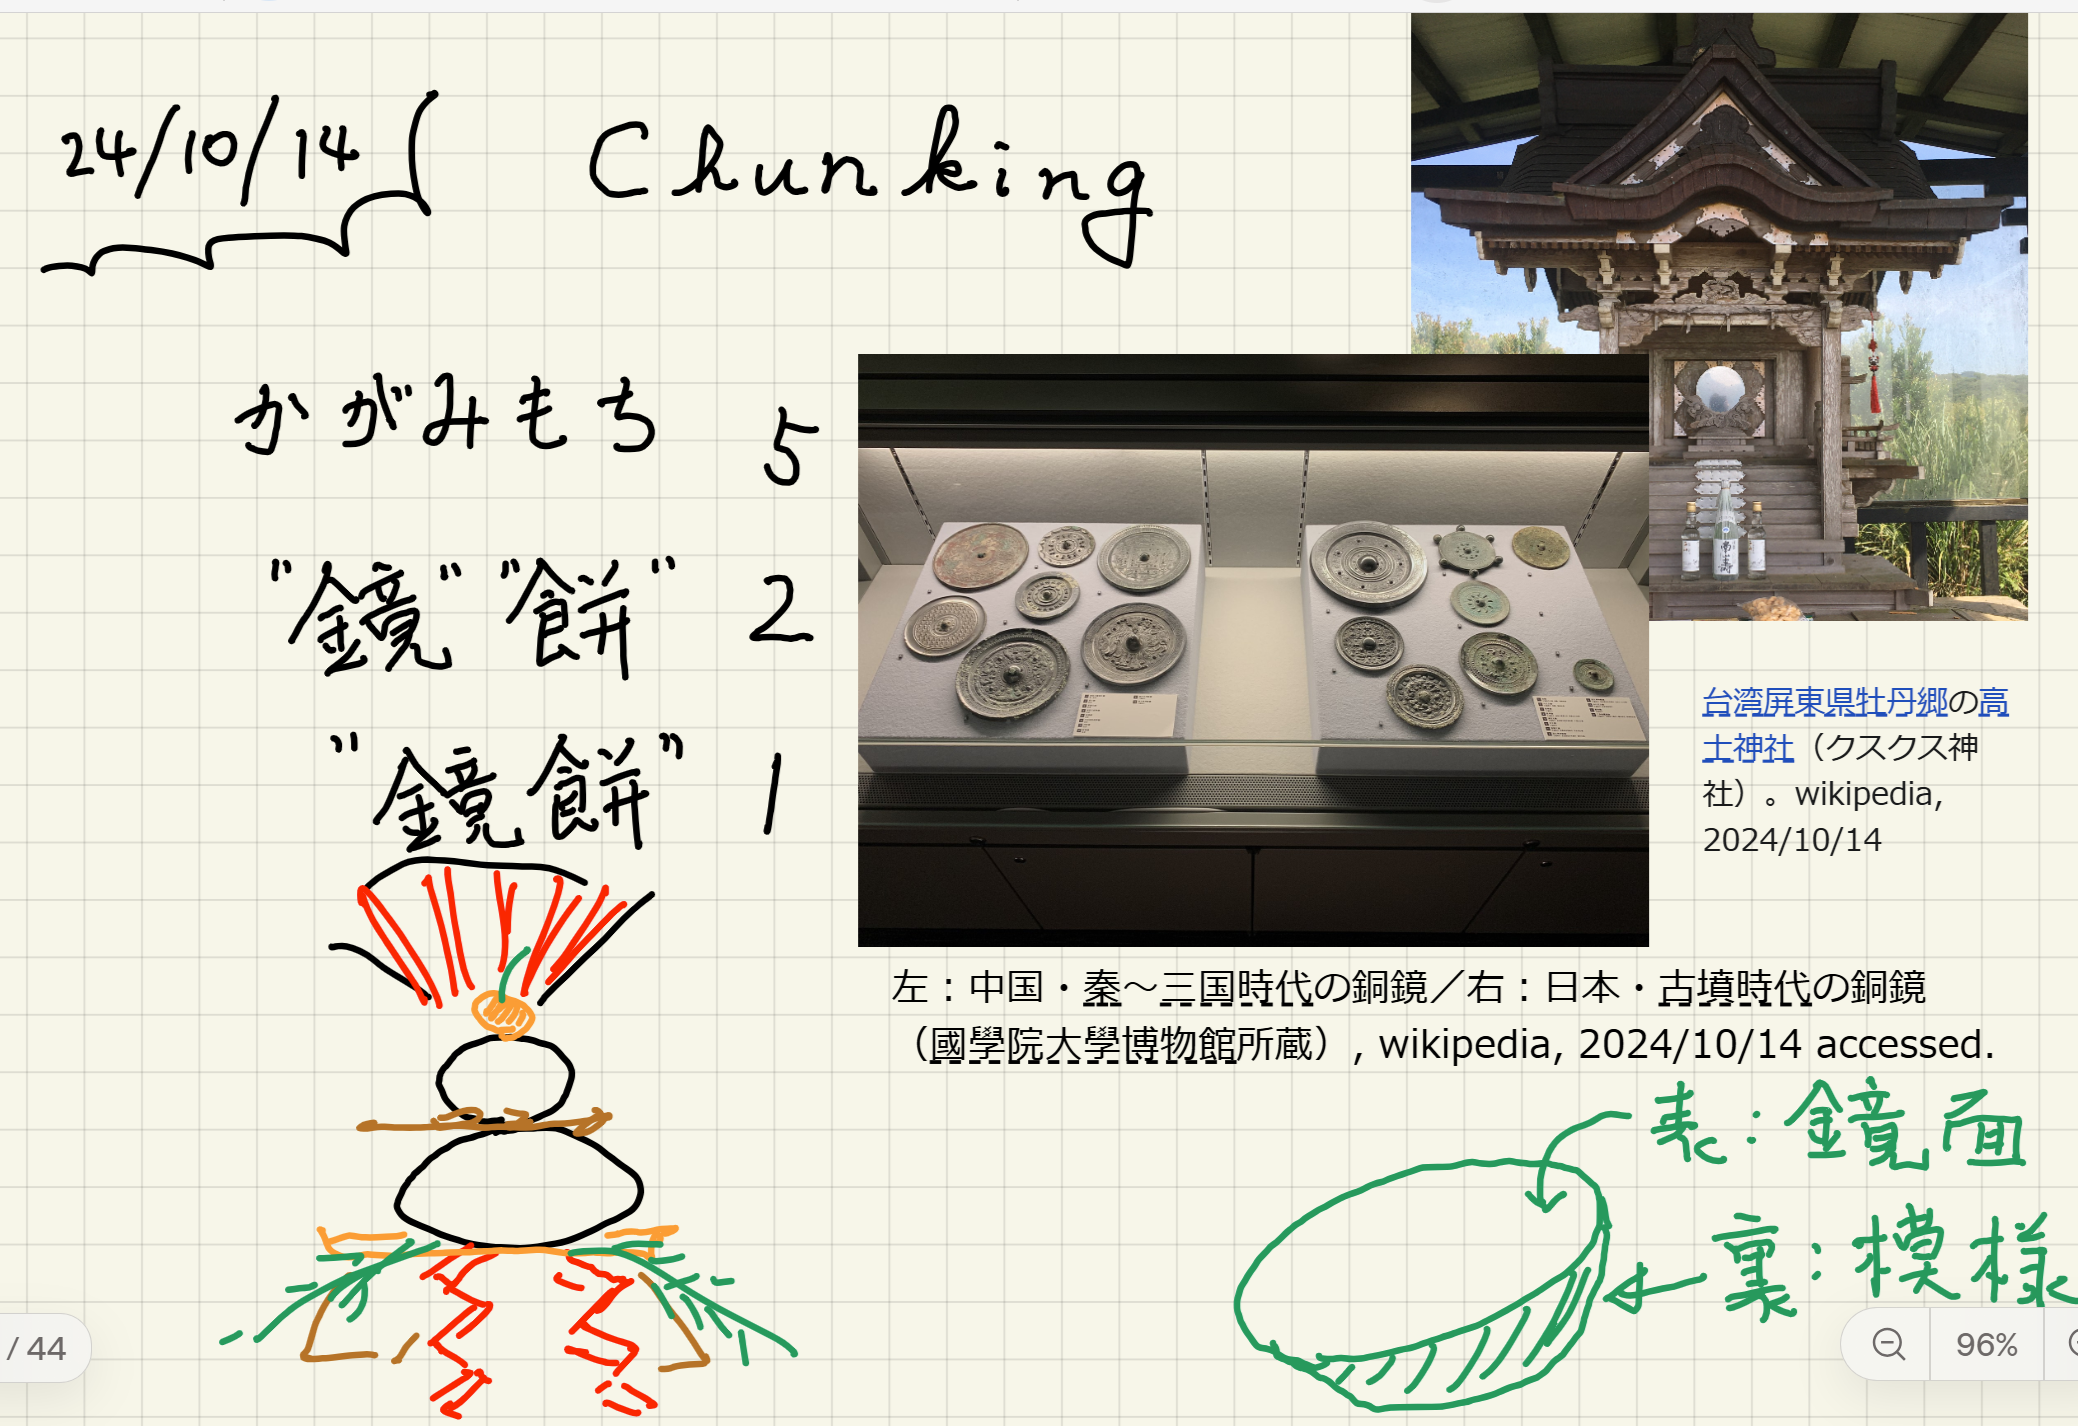 24/10/14
Chunking
かがみもち 5
"鏡" "餅" 2
"鏡餅" 1
台湾屏東県牡丹郷の高
士神社（クスクス神
社）。wikipedia,
2024/10/14
左：中国・秦～三国時代の銅鏡／右：日本・古墳時代の銅鏡
（國學院大學博物館所蔵）, wikipedia, 2024/10/14 accessed.
表：鏡面
裏：模様
/ 44
96%